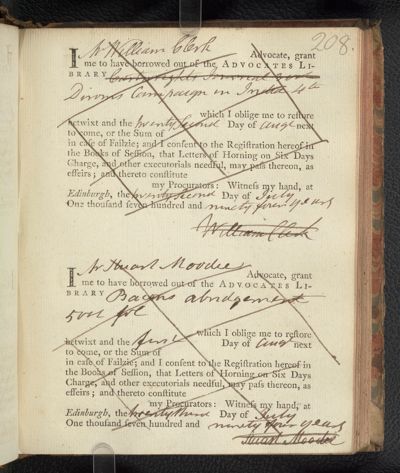 208.
I Mr William Clerk Advocate, grant
me to have borrowed out of the ADVOCATES LI-
BRARY
Diroms Campaign in India 4to
which I oblige me to restore
betwixt and the twenty second Day of augt next
to come, or the Sum of
in case of Failzie; and I consent to the Registration hereof in
the Books of Session, that Letters of Horning on Six Days
Charge, and other executorials needful, may pass thereon, as
effeirs; and thereto constitute
my Procurators: Witness my hand, at
Edinburgh, the twenty second Day of July
One thousand seven hundred and ninety four years
William Clerk
I Mr Stuart Moodie Advocate, grant
me to have borrowed out of the ADVOCATES LI-
BRARY Bacons abridgement
5 vol fol
which I oblige me to restore
betwixt and the first Day of augt next
to come, or the Sum of
in case of Failzie; and I consent to the Registration hereof in
the Books of Session, that Letters of Horning on Six Days
Charge, and other executorials needful, may pass thereon, as
effeirs; and thereto constitute
my Procurators: Witness my hand, at
Edinburgh, the twenty third Day of July
One thousand seven hundred and ninety four years
Stuart Moodie